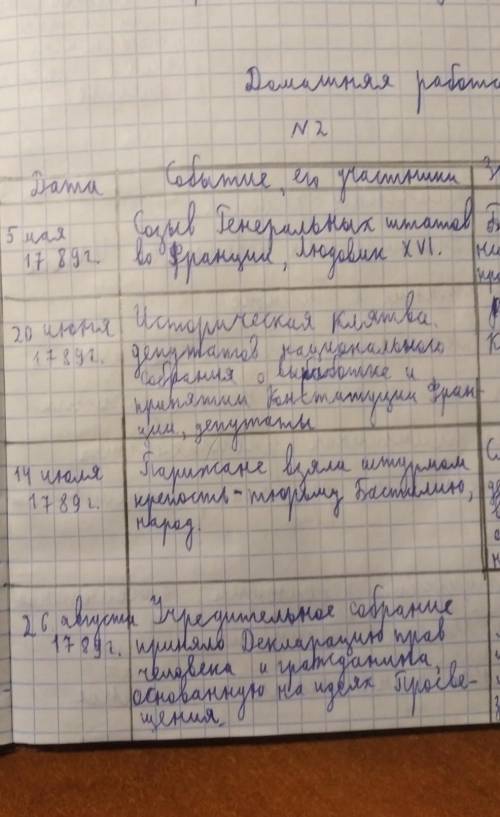 Домашняя работа
N 2
Дата Событие, его участники
5 мая 1789г.
Созыв Генеральных штатов
во Франции, Людовик XVI.
20 июня 1789г.
Историческая клятва
депутатов национального
собрания о выработке и
принятии Конституции Фран-
ции, депутаты
14 июля 1789г.
Парижане взяли штурмом
крепость-тюрьму Бастилию,
народ.
26 августа 1789г.
Учредительное собрание
приняло Декларацию прав
человека и гражданина,
основанную на идеях Просве-
щения.